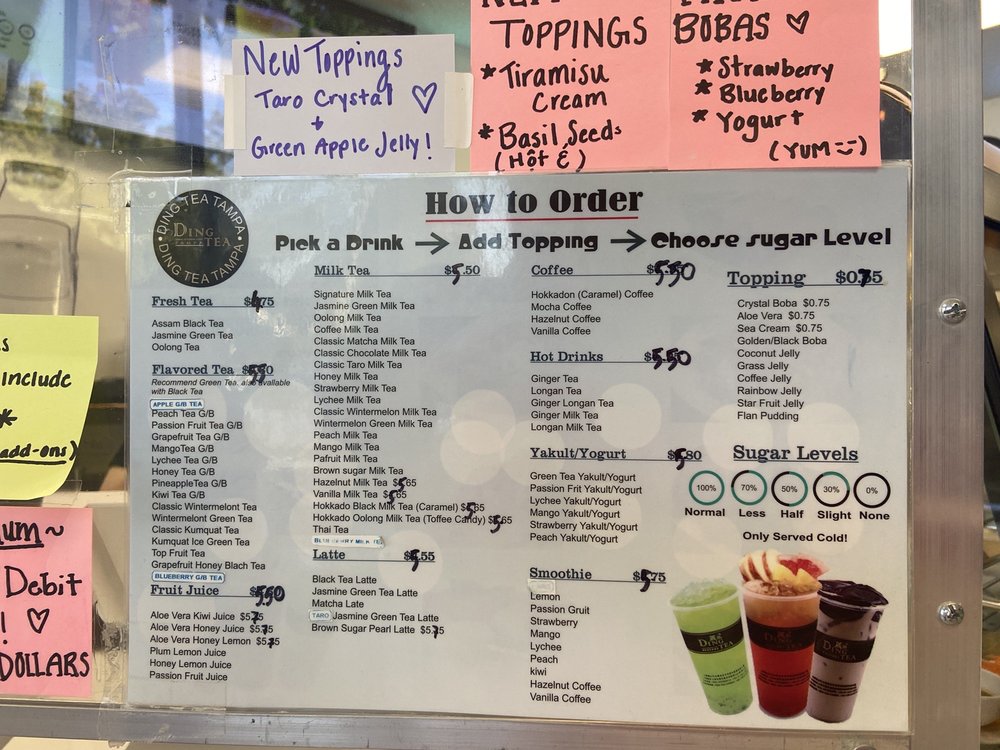 New Toppings
Taro Crystal
+
Green Apple Jelly!
TOPPINGS
* Tiramisu
Cream
* Basil Seeds
(Hot &)
BOBAS
* Strawberry
* Blueberry
* Yogurt
(YUM =)
include
*
add-ons)
um~
Debit
!
DOLLARS
DING TEA TAMPA
DING
TEA
DING TEA TAMPA
How to Order
Pick a Drink → Add Topping → Choose sugar Level
Fresh Tea
Assam Black Tea
Jasmine Green Tea
Oolong Tea
Flavored Tea
Recommend Green Tea. also available
with Black Tea
APPLE G/B TEA
Peach Tea G/B
Passion Fruit Tea G/B
Grapefruit Tea G/B
MangoTea G/B
Lychee Tea G/B
Honey Tea G/B
PineappleTea G/B
Kiwi Tea G/B
Classic Wintermelont Tea
Wintermelont Green Tea
Classic Kumquat Tea
Kumquat Ice Green Tea
Top Fruit Tea
Grapefruit Honey Blach Tea
BLUEBERRY G/B TEA
Fruit Juice $5.50
Aloe Vera Kiwi Juice $5.75
Aloe Vera Honey Juice $5.75
Aloe Vera Honey Lemon $5.75
Plum Lemon Juice
Honey Lemon Juice
Passion Fruit Juice
Milk Tea $5.50
Signature Milk Tea
Jasmine Green Milk Tea
Oolong Milk Tea
Coffee Milk Tea
Classic Matcha Milk Tea
Classic Chocolate Milk Tea
Classic Taro Milk Tea
Honey Milk Tea
Strawberry Milk Tea
Lychee Milk Tea
Classic Wintermelon Milk Tea
Wintermelon Green Milk Tea
Peach Milk Tea
Mango Milk Tea
Pafruit Milk Tea
Brown sugar Milk Tea
Hazelnut Milk Tea $5.65
Vanilla Milk Tea $5.65
Hokkado Black Milk Tea (Caramel) $5.65
Hokkado Oolong Milk Tea (Toffee Candy) $5.65
Thai Tea
BLUEBERRY MILK TEA
Latte $5.55
Black Tea Latte
Jasmine Green Tea Latte
Matcha Late
TARO Jasmine Green Tea Latte
Brown Sugar Pearl Latte $5.75
Coffee $5.50
Hokkadon (Caramel) Coffee
Mocha Coffee
Hazelnut Coffee
Vanilla Coffee
Hot Drinks $5.50
Ginger Tea
Longan Tea
Ginger Longan Tea
Ginger Milk Tea
Longan Milk Tea
Yakult/Yogurt $5.80
Green Tea Yakult/Yogurt
Passion Frit Yakult/Yogurt
Lychee Yakult/Yogurt
Mango Yakult/Yogurt
Strawberry Yakult/Yogurt
Peach Yakult/Yogurt
Smoothie $5.75
Lemon
Passion Gruit
Strawberry
Mango
Lychee
Peach
kiwi
Hazelnut Coffee
Vanilla Coffee
Topping $0.75
Crystal Boba $0.75
Aloe Vera $0.75
Sea Cream $0.75
Golden/Black Boba
Coconut Jelly
Grass Jelly
Coffee Jelly
Rainbow Jelly
Star Fruit Jelly
Flan Pudding
Sugar Levels
100% 70% 50% 30% 0%
Normal Less Half Slight None
Only Served Cold!
DING TEA
DING TEA
DING TEA